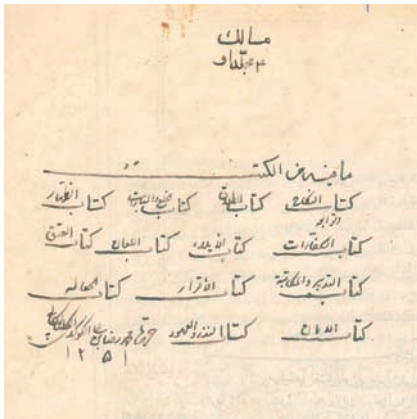 مسالك
ما فيه من الكتب
كتاب النكاح كتاب الطلاق كتاب الخلع والمبارات كتاب الظهار
كتاب الكفارات كتاب الايلاء كتاب اللعان كتاب العتق
كتاب التدبير والمكاتبة كتاب الأقرار كتاب الجعاله
كتاب الايمان كتاب النذر والعهود
١٢٥١